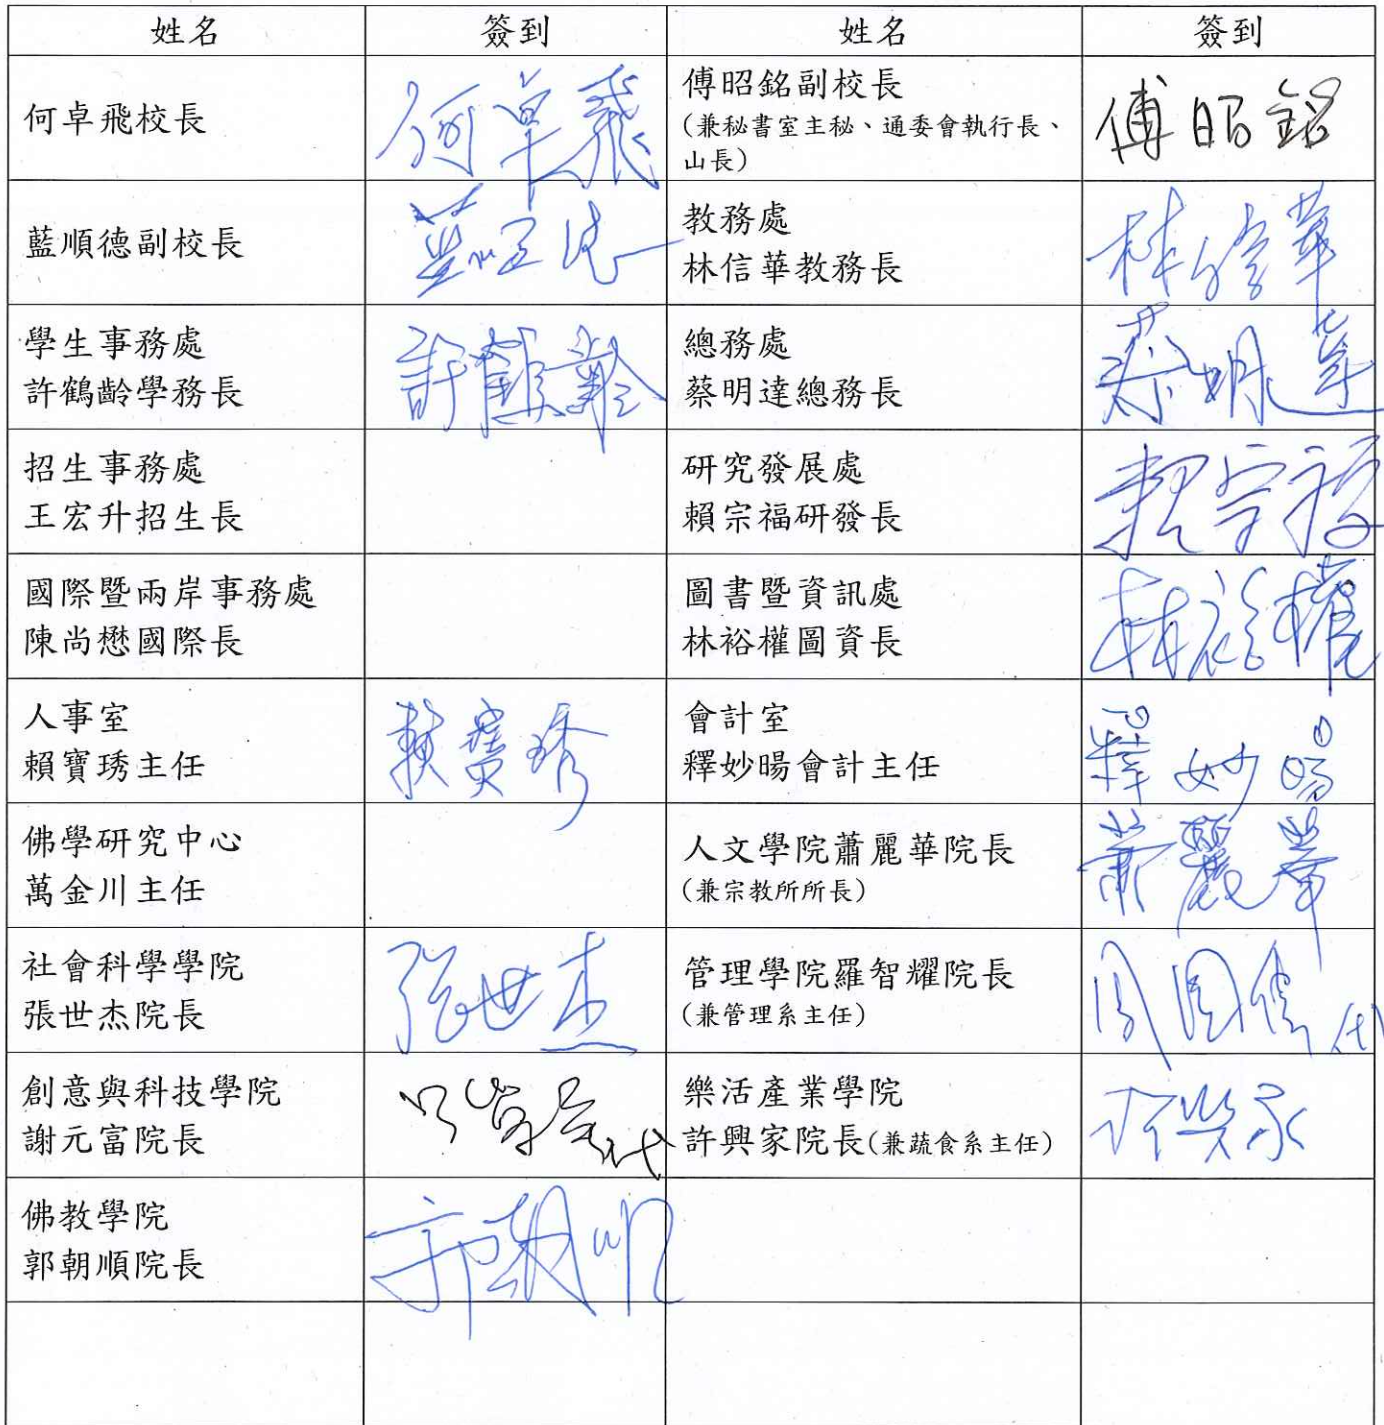 姓名 簽到 姓名 簽到
何卓飛校長 何卓飛 傅昭銘副校長 傅昭銘
(兼秘書室主秘、通委會執行長、
山長)
藍順德副校長
教務處
林信華教務長 林信華
學生事務處
許鶴齡學務長 許鶴齡
總務處
蔡明達總務長 蔡明達
招生事務處
王宏升招生長
研究發展處
賴宗福研發長 賴宗福
國際暨兩岸事務處
陳尚懋國際長
圖書暨資訊處
林裕權圖資長 林裕權
人事室
賴寶琇主任 賴寶琇
會計室
釋妙暘會計主任 釋妙暘
佛學研究中心
萬金川主任
人文學院蕭麗華院長 蕭麗華
(兼宗教所所長)
社會科學學院
張世杰院長 張世杰
管理學院羅智耀院長
(兼管理系主任) 代
創意與科技學院
謝元富院長 代
樂活產業學院
許興家院長(兼蔬食系主任) 許興家
佛教學院
郭朝順院長 郭朝順